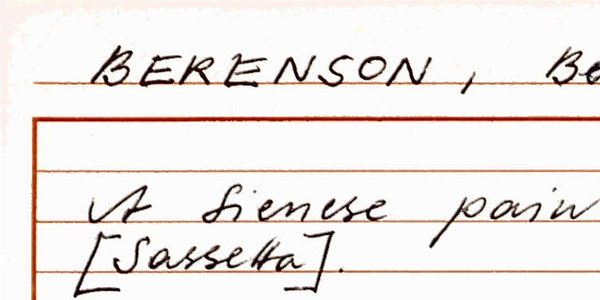 BERENSON, Be
A Sienese pain
[Sassetta].